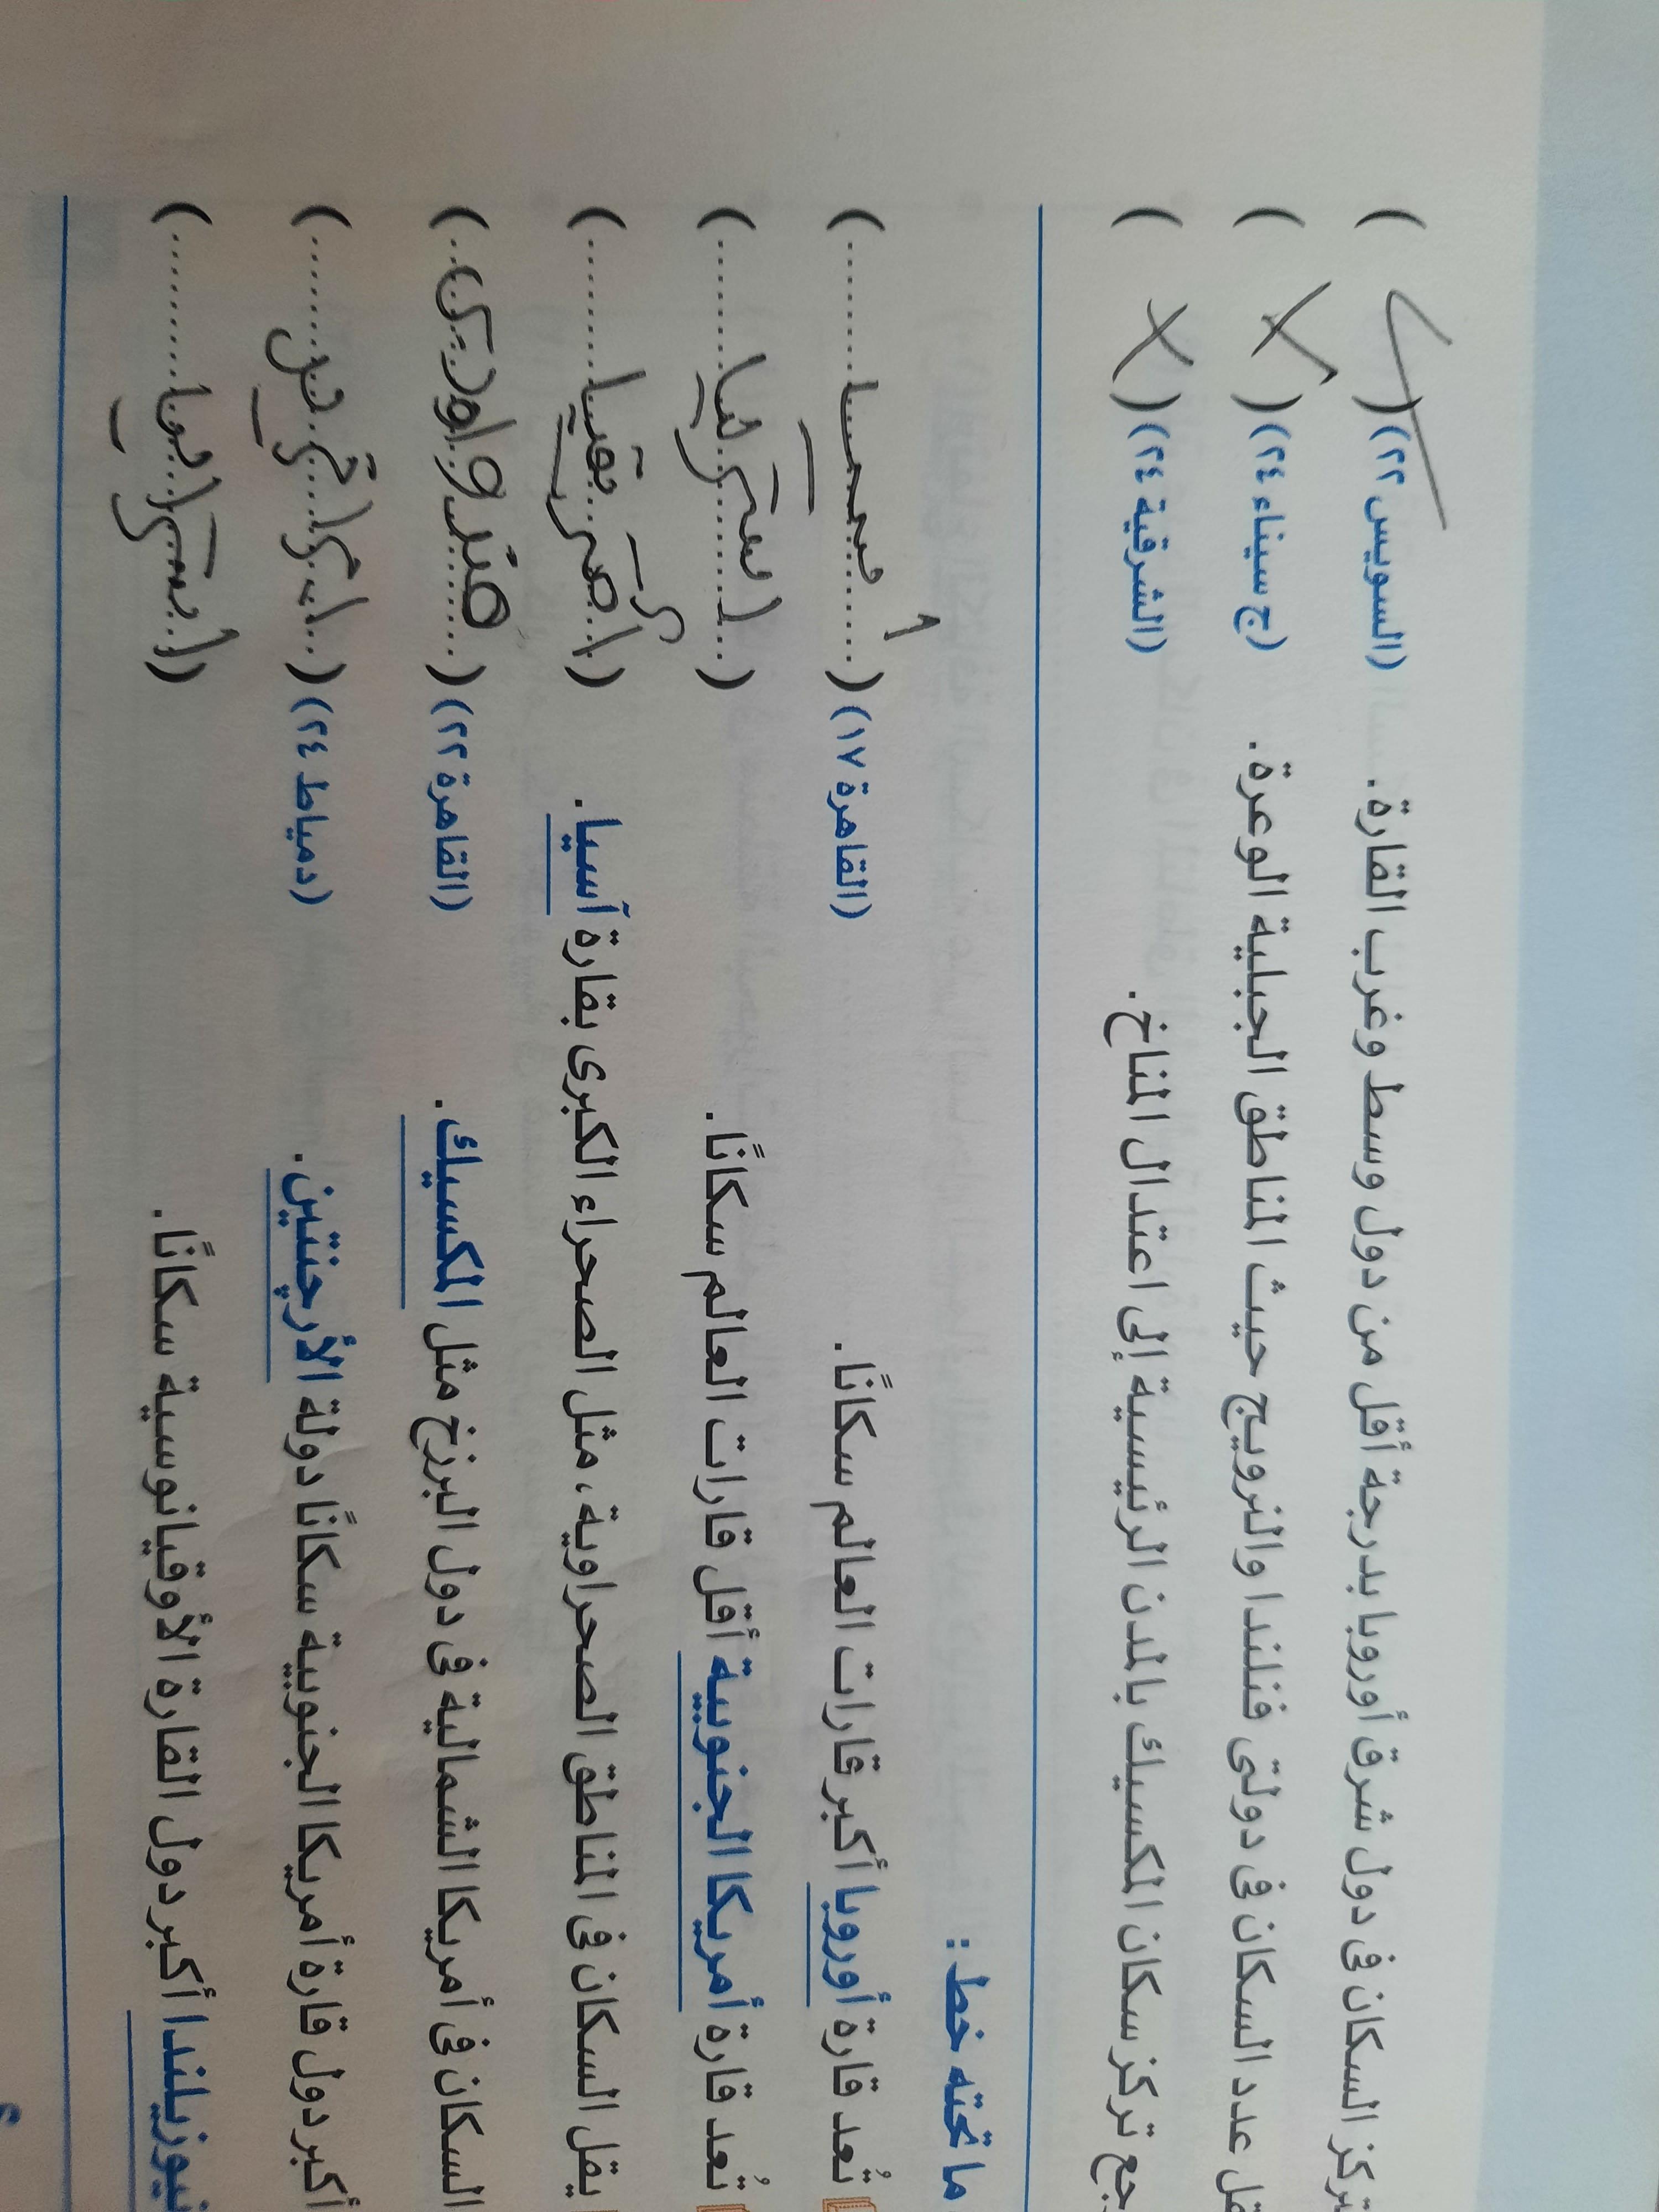 تركز السكان فى دول شرق أوروبا بدرجة أقل من دول وسط وغرب القارة. (السويس ٢٢) ( ✓ )
قل عدد السكان فى دولتى فنلندا والنرويج حيث المناطق الجبلية الوعرة. (ج سيناء ٢٤) ( ✗ )
جع تركز سكان المكسيك بالمدن الرئيسية إلى اعتدال المناخ. (الشرقية ٢٤) ( ✗ )
ما تحته خط :
تُعد قارة أوروبا أكبر قارات العالم سكانًا. (القاهرة ١٧)
تُعد قارة أمريكا الجنوبية أقل قارات العالم سكانًا. (استرليا)
يقل السكان فى المناطق الصحراوية، مثل الصحراء الكبرى بقارة آسيا.
السكان فى أمريكا الشمالية فى دول البرزخ مثل المكسيك. (القاهرة ٢٢)
أكبر دول قارة أمريكا الجنوبية سكانًا دولة الأرچنتين. (دمياط ٢٤)
نيوزيلندا أكبر دول القارة الأوقيانوسية سكانًا.